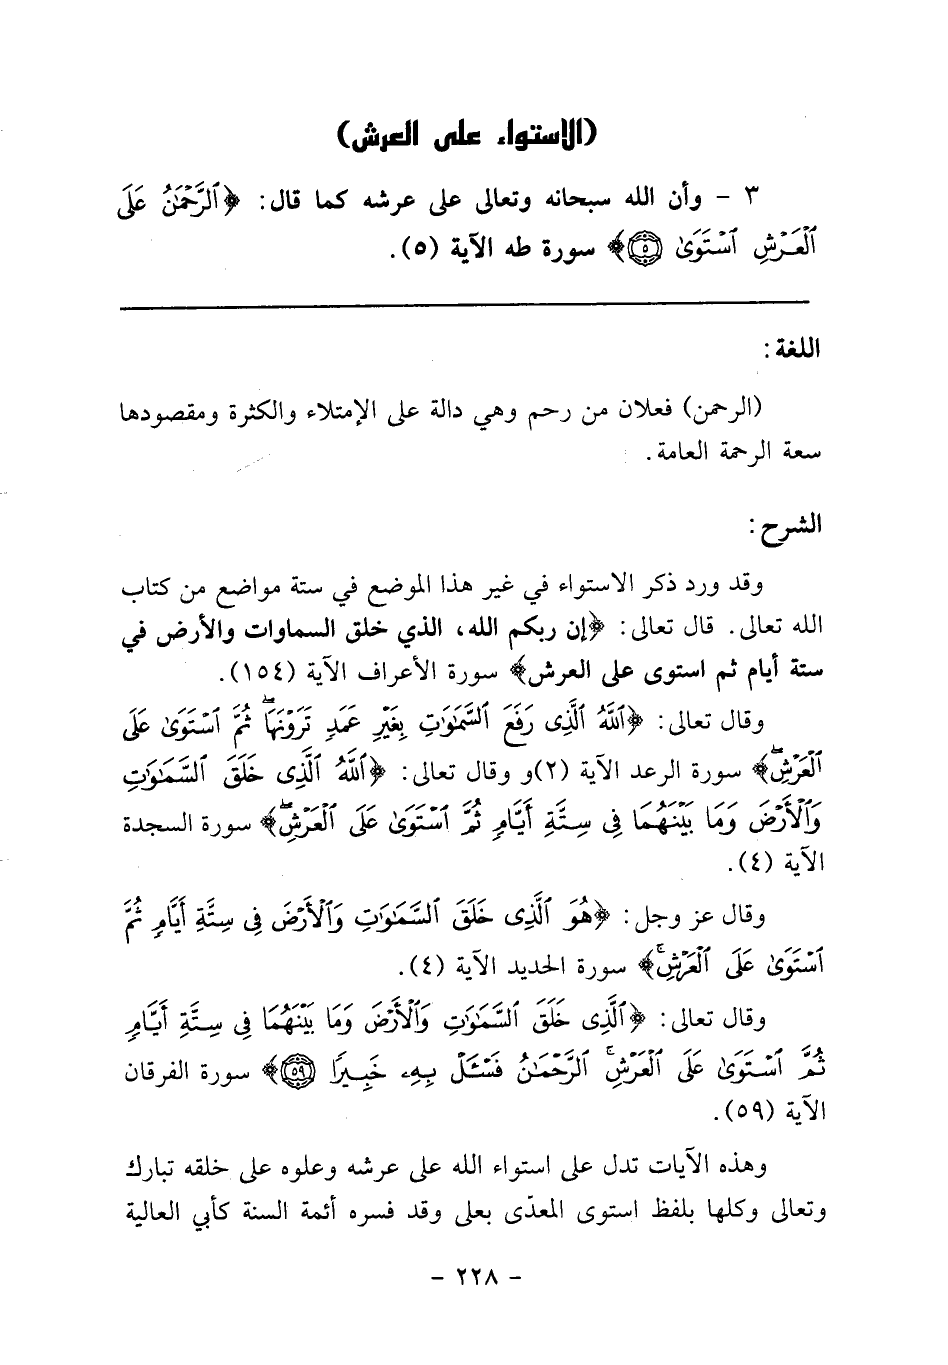 (الاستواء على العرش)
٣ - وأن الله سبحانه وتعالى على عرشه كما قال: ﴿ٱلرَّحۡمَٰنُ عَلَى
ٱلۡعَرۡشِ ٱسۡتَوَىٰ ٥﴾ سورة طه الآية (٥).
اللغة:
(الرحمن) فعلان من رحم وهي دالة على الإمتلاء والكثرة ومقصودها
سعة الرحمة العامة.
الشرح:
وقد ورد ذكر الاستواء في غير هذا الموضع في ستة مواضع من كتاب
الله تعالى. قال تعالى: ﴿إن ربكم الله، الذي خلق السماوات والأرض في
ستة أيام ثم استوى على العرش﴾ سورة الأعراف الآية (١٥٤).
وقال تعالى: ﴿ٱللَّهُ ٱلَّذِى رَفَعَ ٱلسَّمَٰوَٰتِ بِغَيۡرِ عَمَدٖ تَرَوۡنَهَاۖ ثُمَّ ٱسۡتَوَىٰ عَلَى
ٱلۡعَرۡشِۖ﴾ سورة الرعد الآية (٢)و وقال تعالى: ﴿ٱللَّهُ ٱلَّذِى خَلَقَ ٱلسَّمَٰوَٰتِ
وَٱلۡأَرۡضَ وَمَا بَيۡنَهُمَا فِى سِتَّةِ أَيَّامٖ ثُمَّ ٱسۡتَوَىٰ عَلَى ٱلۡعَرۡشِۖ﴾ سورة السجدة
الآية (٤).
وقال عز وجل: ﴿هُوَ ٱلَّذِى خَلَقَ ٱلسَّمَٰوَٰتِ وَٱلۡأَرۡضَ فِى سِتَّةِ أَيَّامٖ ثُمَّ
ٱسۡتَوَىٰ عَلَى ٱلۡعَرۡشِۚ﴾ سورة الحديد الآية (٤).
وقال تعالى: ﴿ٱلَّذِى خَلَقَ ٱلسَّمَٰوَٰتِ وَٱلۡأَرۡضَ وَمَا بَيۡنَهُمَا فِى سِتَّةِ أَيَّامٖ
ثُمَّ ٱسۡتَوَىٰ عَلَى ٱلۡعَرۡشِۚ ٱلرَّحۡمَٰنُ فَسۡـَٔلۡ بِهِۦ خَبِيرٗا ٥٩﴾ سورة الفرقان
الآية (٥٩).
وهذه الآيات تدل على استواء الله على عرشه وعلوه على خلقه تبارك
وتعالى وكلها بلفظ استوى المعدّى بعلى وقد فسره أئمة السنة كأبي العالية
- ٢٢٨ -